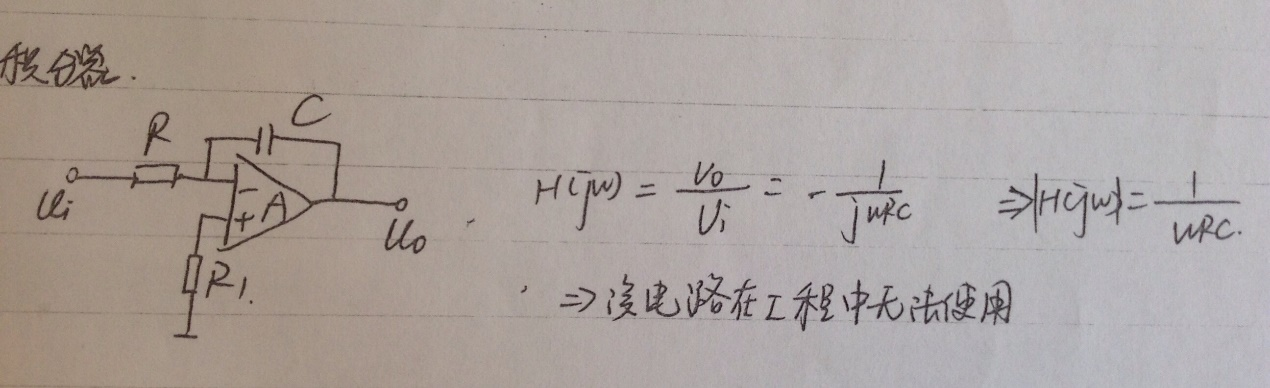 积分器.
C
R
Ui
- A
+
Uo
R1.
H(jw) = Uo/Ui = - 1/jwRC ⇒|H(jw)|= 1/wRC.
⇒该电路在工程中无法使用